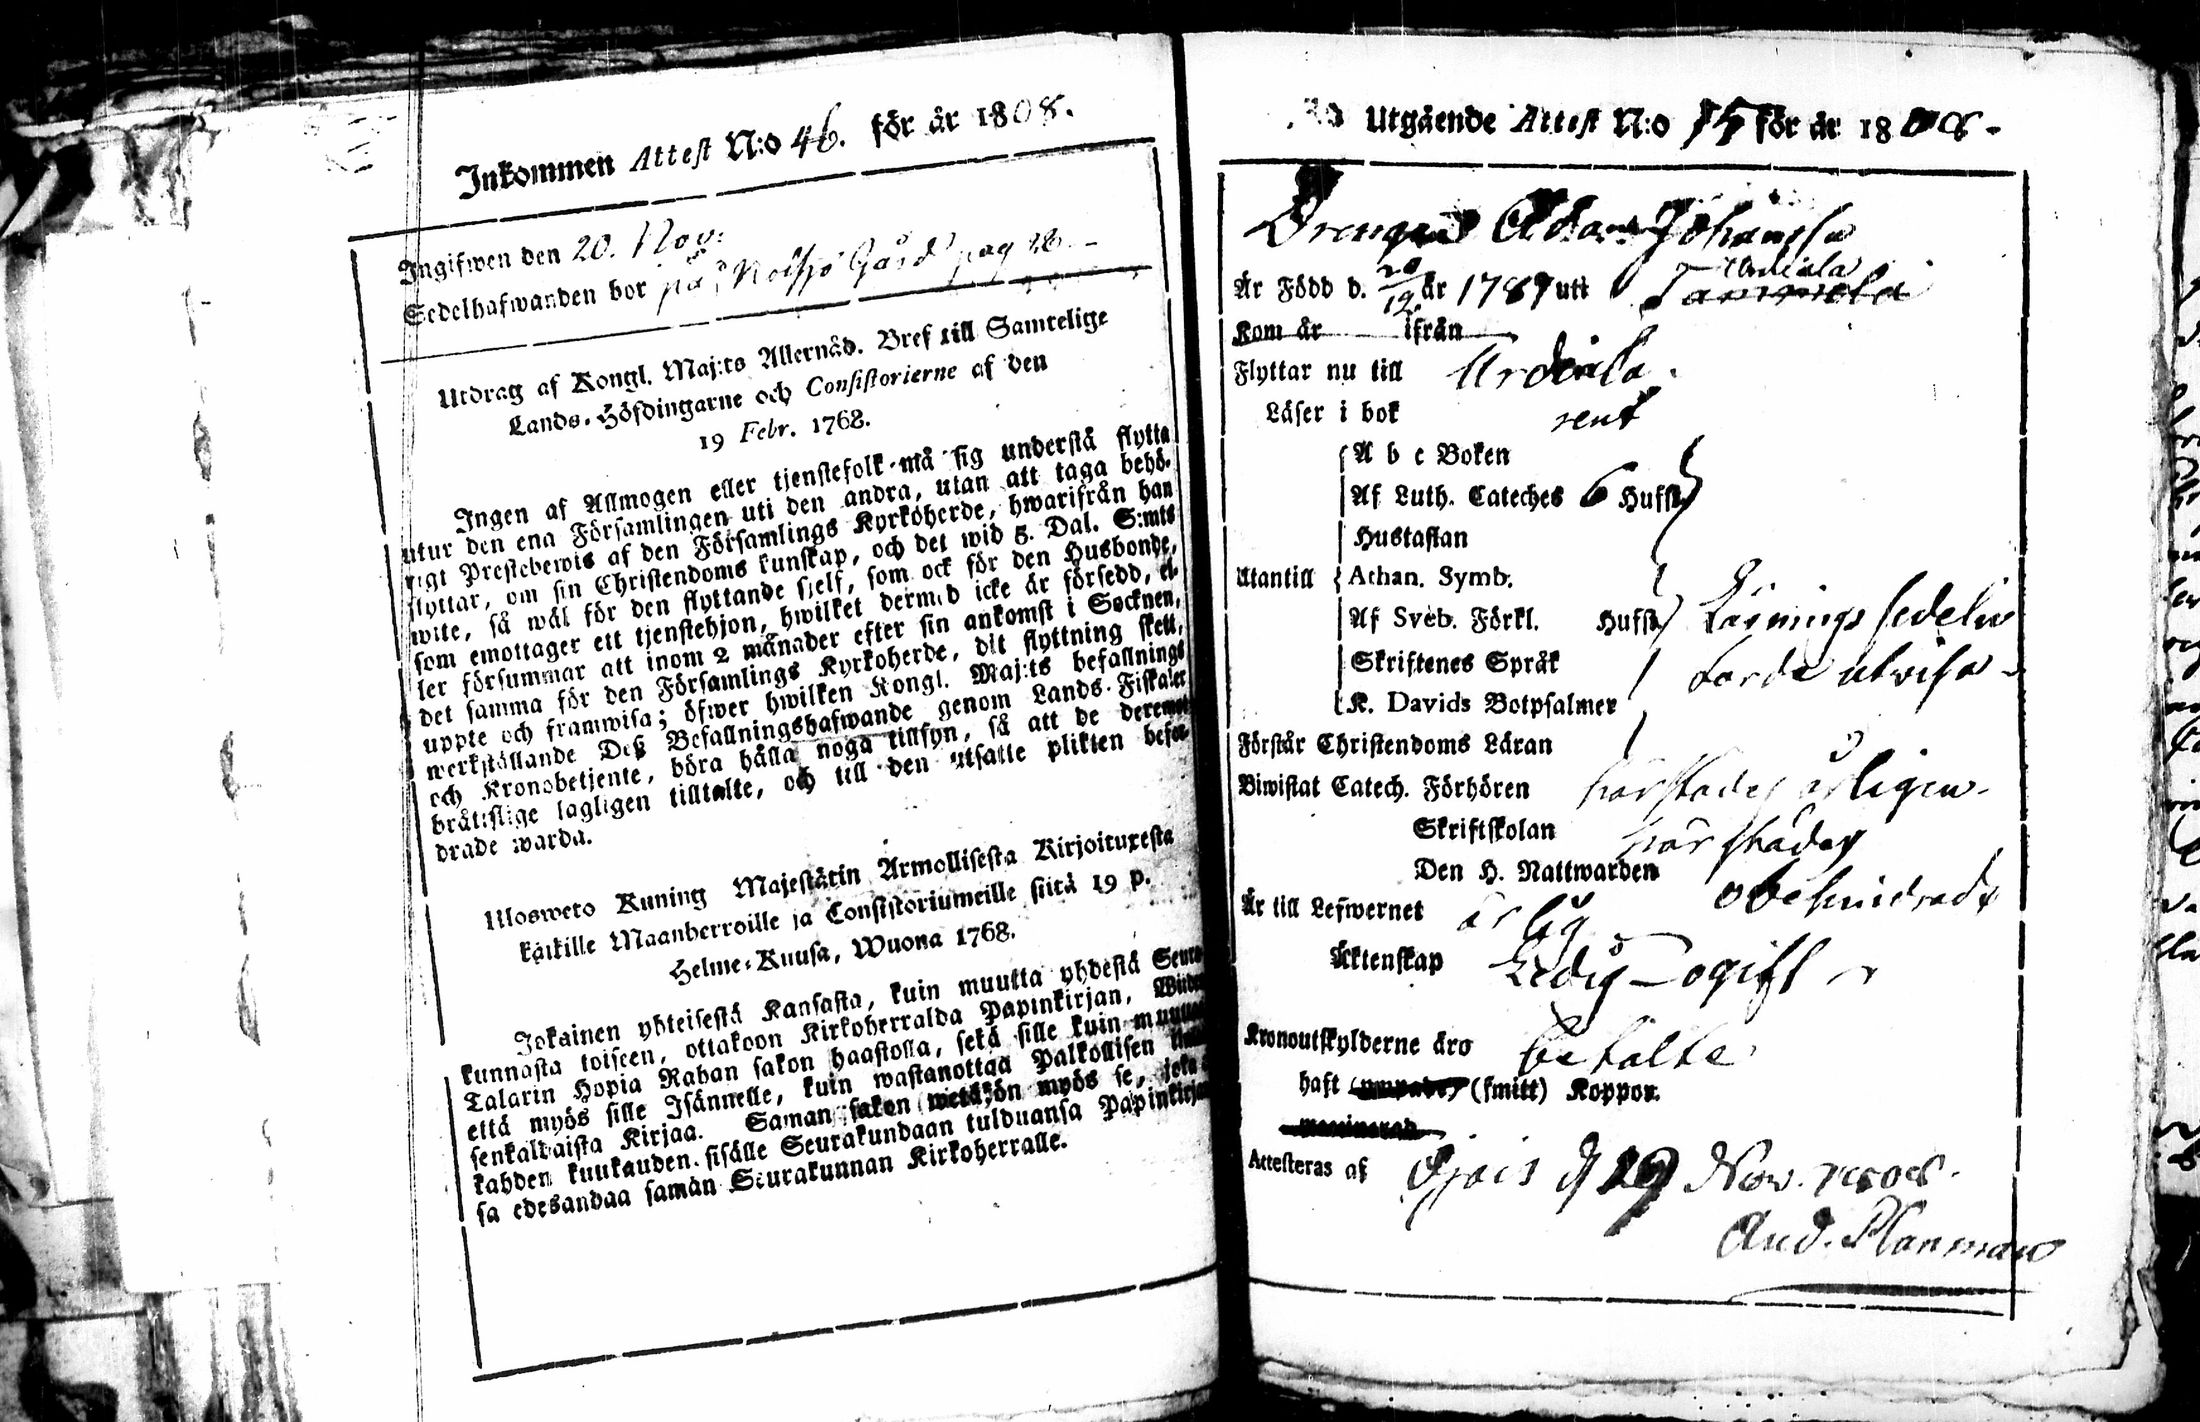 Inkommen Attest N:o 46. för år 1808.
Ingifwen den 20. Nov:
Sedelhafwanden bor på Notsjö Gård pag 28
Utdrag af Kongl. Maj:ts Allernåd. Bref till Samtelige
Lands-Höfdingarne och Consistorierne af den
19 Febr. 1768.
Ingen af Allmogen eller tjenstefolk må sig understå flytta
utur den ena Församlingen uti den andra, utan att taga behö-
rigt Prestebewis af den Församlings Kyrkoherde, hwarifrån han
flyttar, om sin Christendoms kunskap, och det wid 5. Dal. S:mts
wite, så wäl för den flyttande sjelf, som ock för den Husbonde,
som emottager ett tjenstehjon, hwilket dermed icke är försedd, el-
ler försummar att inom 2 månader efter sin ankomst i Socknen,
det samma för den Församlings Kyrkoherde, dit flyttning skett,
uppte och framwisa; öfwer hwilken Kongl. Maj:ts befallnings
werkställande Deß Befallningshafwande genom Lands-Fiskaler
och Kronobetjente, böra hålla noga tillsyn, så att de deremot
bråttslige lagligen tilltalte, och till den utsatte plikten befor-
drade warda.
Ulosweto Kuning Majestätin Armollisesta Kirjoituxesta
kaikille Maanherroille ja Consistoriumeille siitä 19 p.
Helme-Kuusa, Wuona 1768.
Jokainen yhteisestä Kansasta, kuin muutta yhdestä Seura-
kunnasta toiseen, ottakoon Kirkoherralda Papinkirjan, Wiiden
Talarin Hopia Rahan sakon haastolla, sekä sille kuin muutta
että myös sille Isännelle, kuin wastanottaa Palkollisen
senkaldaista Kirjaa. Saman sakon wetäkön myös se, joka
kahden kuukauden sisälle Seurakundaan tulduansa Papinkirjan
sa edesandaa samän Seurakunnan Kirkoherralle.
Utgående Attest N:o 15 för år 1808.
Drengen Adam Johansso
Är Född d. 20/12 år 1787 uti Tammela Urdiala
Kom år ifrån
Flyttar nu till Urdiala.
Läser i bok rent
A b c Boken
Af Luth. Cateches 6 Hufst.
Hustaflan
Utantill Athan. Symb.
Af Sveb. Förkl. Hufst. Läsnings sedeln
Skriftenes Språk torde utwisa
K. Davids Botpsalmer
Förstår Christendoms Läran
Biwistat Catech. Förhören härstädes årligen.
Skriftskolan härstädes
Den H. Nattwarden obehindradt
Är till Lefwernet ärlig
Äktenskap Ledig ogift
Kronoutskylderne äro betalte
haft (ympade) (smitt) Koppor.
vaccinerad
Attesteras af Ypäis d 19 Nov. 1808.
And. Planman